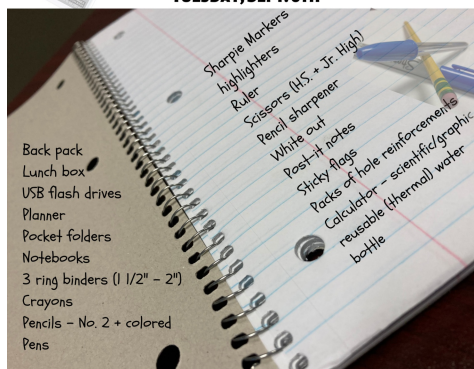 Back pack
Lunch box
USB flash drives
Planner
Pocket folders
Notebooks
3 ring binders (1 1/2" – 2")
Crayons
Pencils – No. 2 + colored
Pens
Sharpie Markers
highlighters
Ruler
Scissors (H.S. + Jr. High)
Pencil sharpener
White out
Post-it notes
Sticky flags
Packs of hole reinforcements
Calculator – scientific/graphic
reusable (thermal) water
bottle